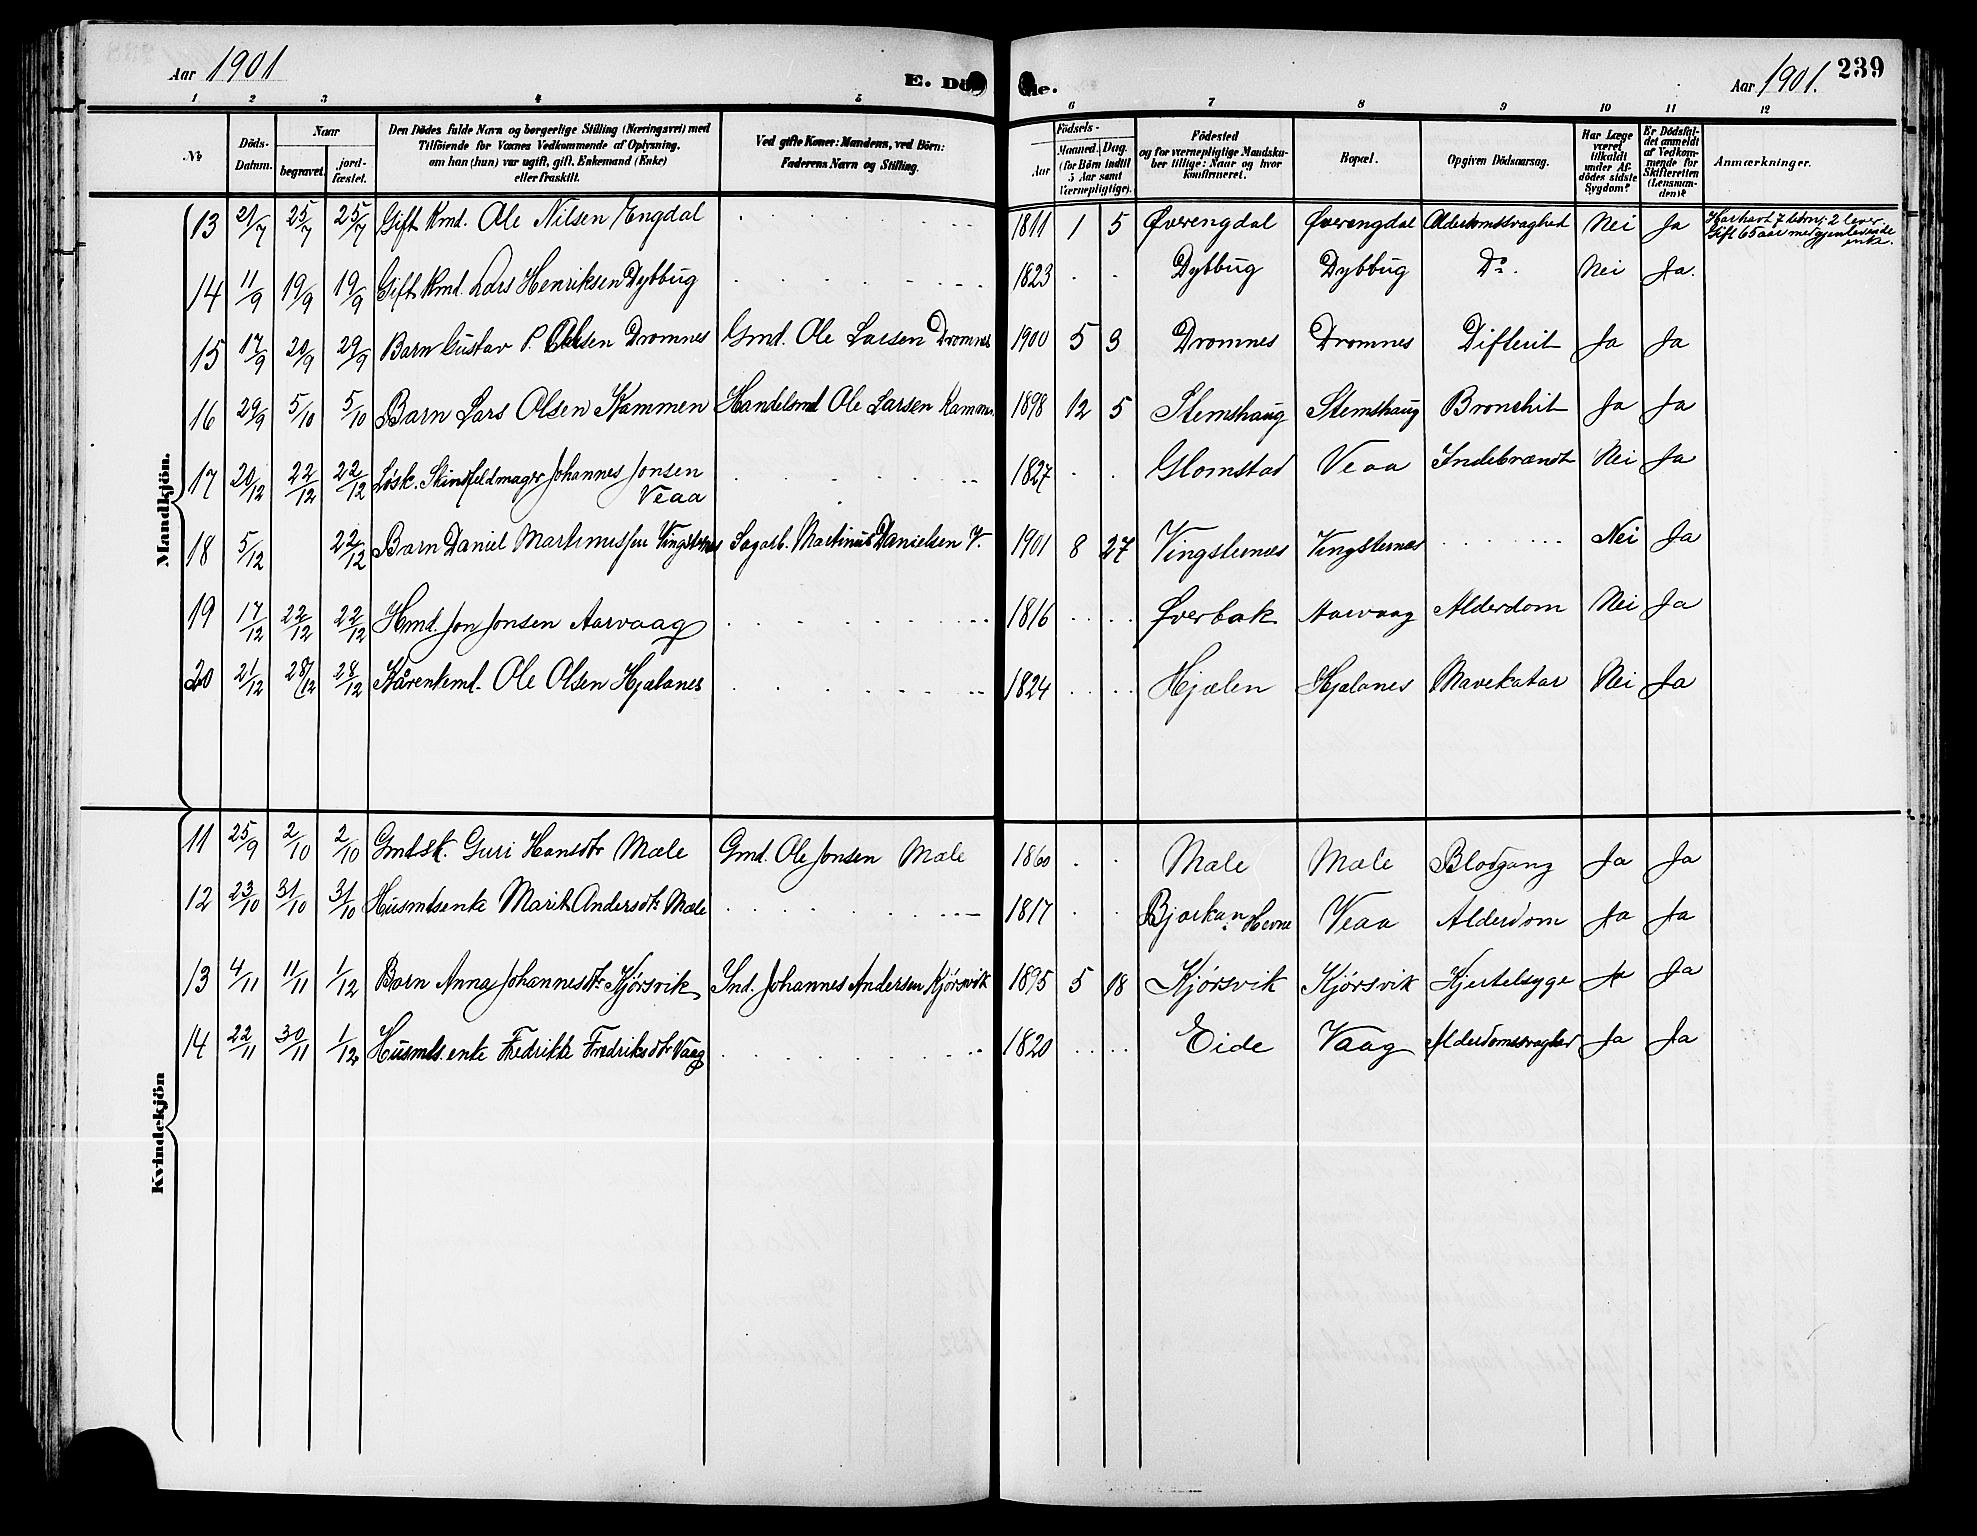 Aar 1901
E. Dö
de.
Aar 1901.
239
1 2 3 4 5 6 7 8 9 10 11 12
No
Döds-Datum.
Naar
begravet.
jord-fæstet.
Den Dödes fulde Navn og borgerlige Stilling (Næringsvei) med
Tilföiende for Voxnes Vedkommende af Oplysning.
om han (hun) var ugift, gift, Enkemand (Enke)
eller fraskilt.
Ved gifte Koner: Mandens, ved Börn:
Faderens Navn og Stilling.
Födsels-
Aar
Maaned. Dag.
(for Börn indtil
5 Aar samt
Værnepligtige).
Födested
og for værnepligtige Mandska-
ber tillige: Naar og hvor
konfirmeret.
Bopæl.
Opgiven Dödsaarsag.
Har Læge
været
tilkaldt
under Af-
dödes sidste
Sygdom?
Er Dödsfal-
det anmeldt
af Vedkom-
mende for
Skifteretten
(Lensman-
den)?
Anmærkninger.
Mandkjön.
13 21/7 25/7 25/7 Gift Kmd. Ole Nilsen Engdal 1811 1 5 Øverengdal Øverengdal Alderdomssvaghed Nei Ja Har havt 7 børn; 2 lever.
Gift 65 aar med gjenlevende
enke.
14 11/9 19/9 19/9 Gift Kmd. Lars Henriksen Dybbug 1823 Dybbug Dybbug Do. Nei Ja.
15 17/9 20/9 29/9 Barn Gustav P. Olsen Dromnes Gmd. Ole Larsen Dromnes 1900 5 3 Dromnes Dromnes Difterit Ja Ja
16 29/9 5/10 5/10 Barn Lars Olsen Kammen Handelsmd Ole Larsen Kammen 1898 12 5 Stemshaug Stemshaug Bronchit Ja Ja
17 20/12 22/12 22/12 Løsk. Skindfeldmager Johannes Jonsen
Veaa 1827 Glomstad Veaa Indebrændt Nei Ja
18 5/12 22/12 Barn Daniel Martinussen Vingsternes Sagarb. Martinus Danielsen V. 1901 8 27 Vingsternes Vingsternes Nei Ja
19 17/12 22/12 22/12 Hmd. Jon Jonsen Aarvaag 1816 Øverbak Aarvaag Alderdom Nei Ja
20 21/12 28/12 28/12 Kårenkemd. Ole Olsen Hjælanes 1824 Hjælen Hjælanes Mavekatar Nei Ja
Kvindekjön
11 25/9 2/10 2/10 Gmdsk. Guri Hansdtr Mæle Gmd. Ole Jonsen Mæle 1860 Mæle Mæle Blodgang Ja Ja
12 23/10 31/10 31/10 Husmdsenke Marit Andersdtr Mæle 1817 Bjørkan i Hevne Veaa Alderdom Ja Ja
13 4/11 11/11 1/12 Barn Anna Johannesdtr. Kjørsvik Ind. Johannes Andersen Kjørsvik 1895 5 18 Kjørsvik Kjørsvik Kjertelsyge Ja Ja
14 22/11 30/11 1/12 Husmds.enke Fredrikke Fredriksdtr Vaag 1820 Eide Vaag Alderdomssvaghed Ja Ja